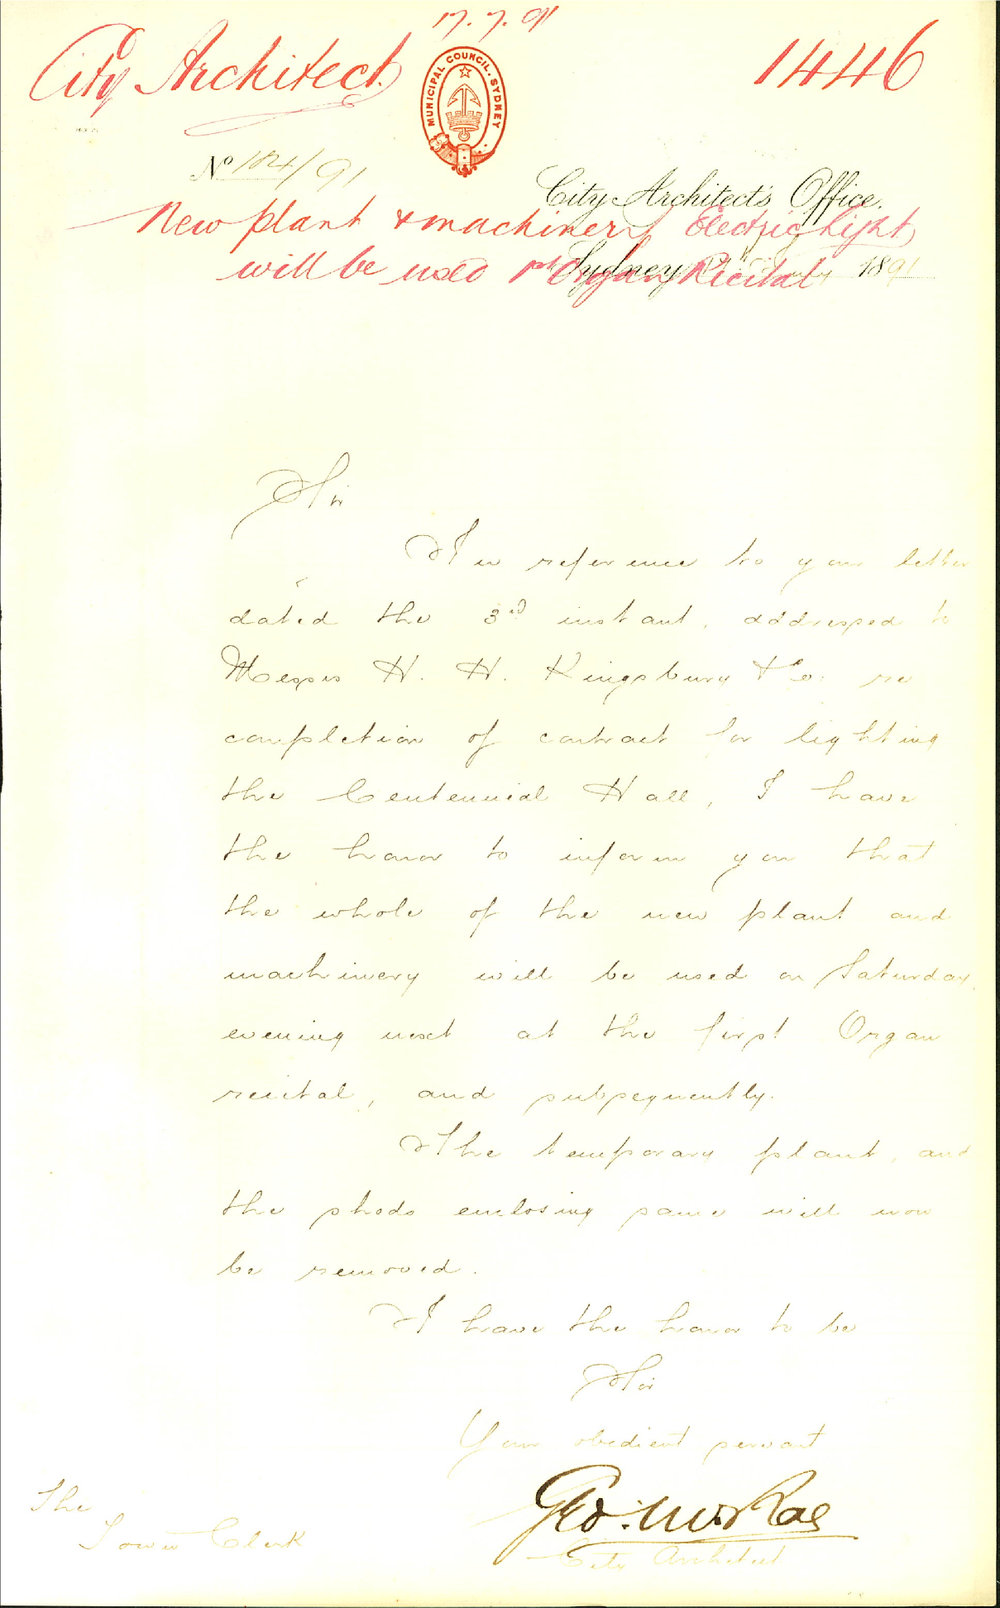 17.7.91
City Architect 1446
MUNICIPAL COUNCIL. SYDNEY
No 124/91
City Architect's Office.
New plant & machinery Electric light
Sydney 1891
will be used 1st Organ Recital
Sir
In reference to your letter
dated the 3rd instant, addressed to
Messrs H. H. Kingsbury & Co. re
completion of contract for lighting
the Centennial Hall, I have
the honor to inform you that
the whole of the new plant and
machinery will be used on Saturday
evening next at the first Organ
recital, and subsequently.
The temporary plant, and
the sheds enclosing same will now
be removed.
I have the honor to be
Sir
Your obedient servant
Geo. McRae
City Architect
The
Town Clerk